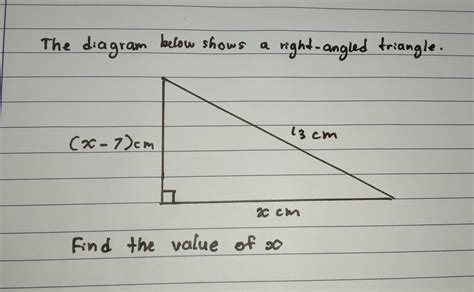 The diagram below shows a right-angled triangle.
(x - 7)cm
13 cm
x cm
Find the value of x